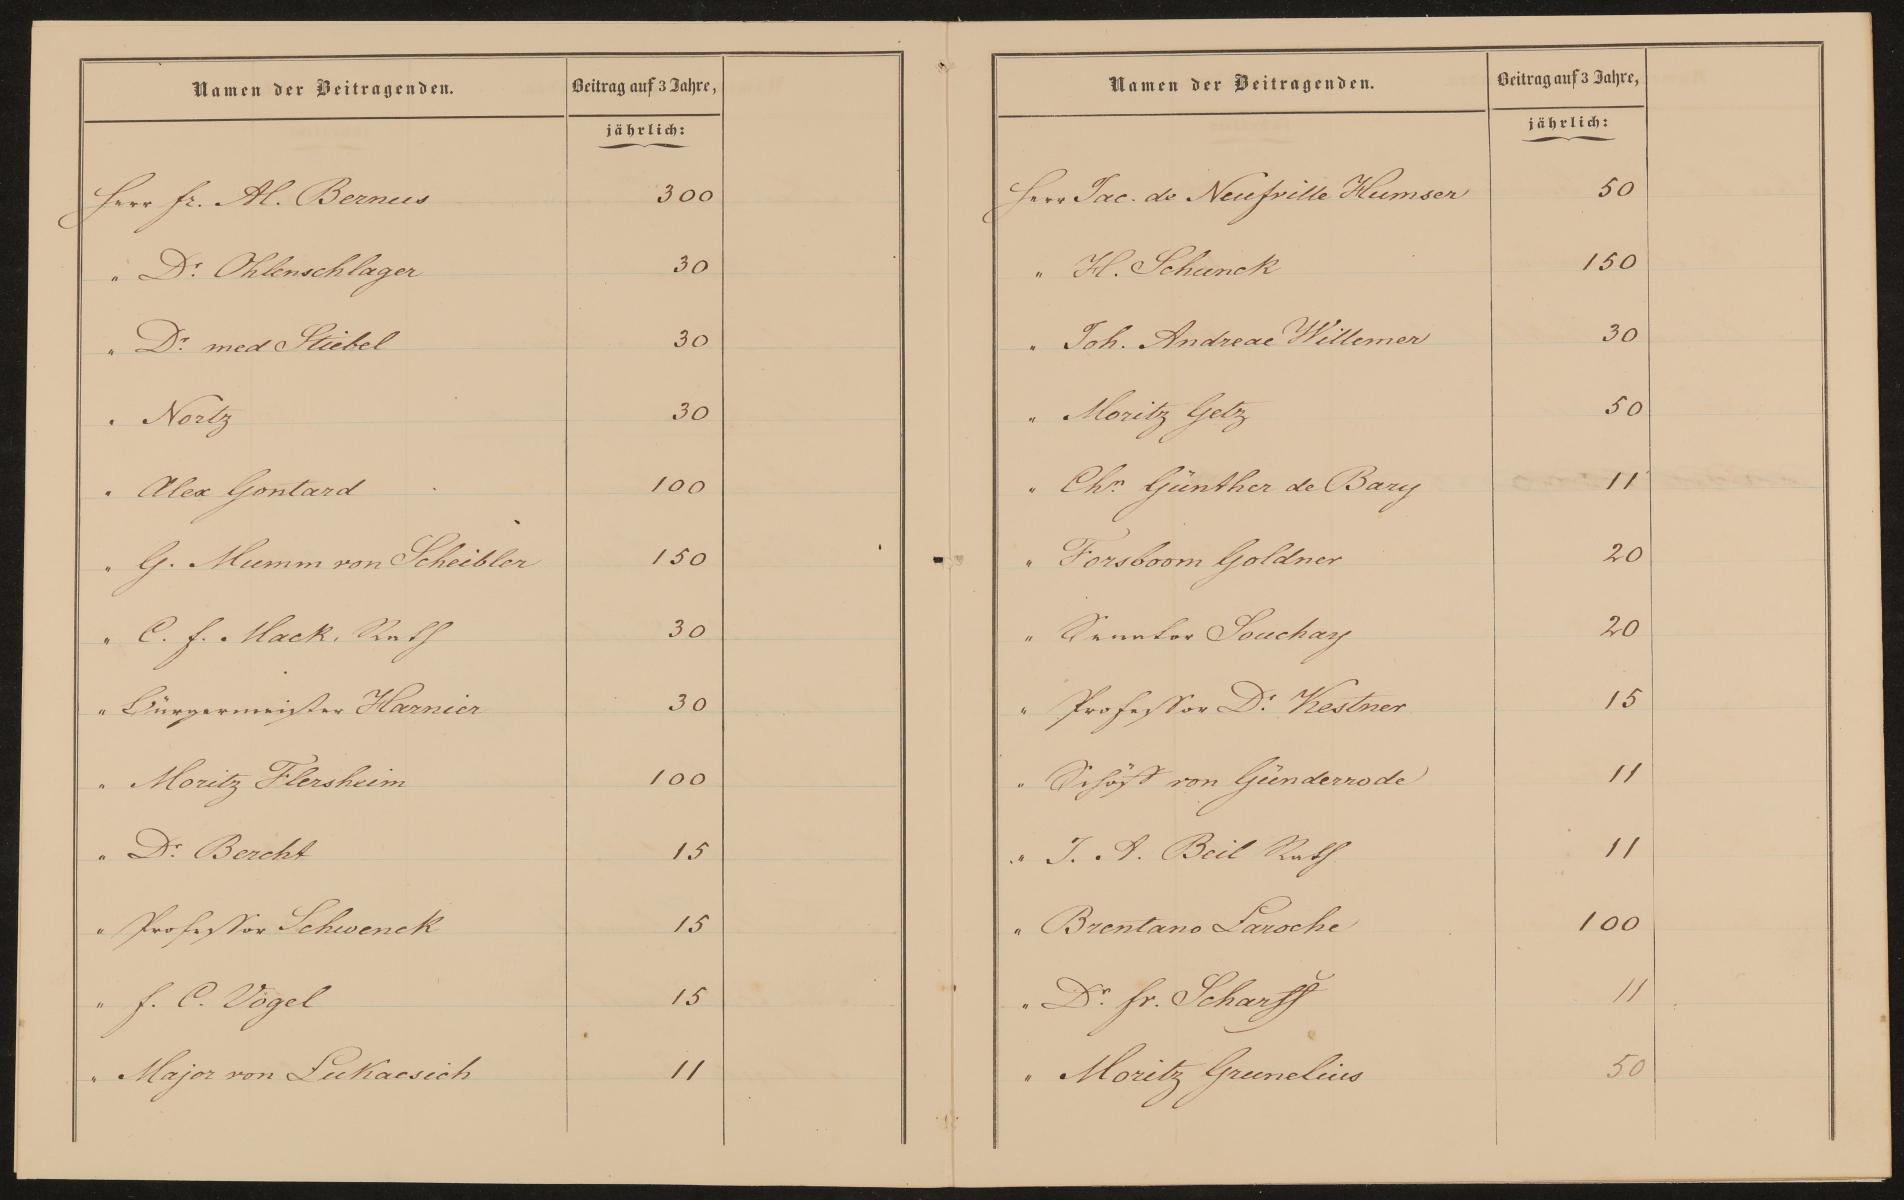 Namen der Beitragenden. Beitrag auf 3 Jahre,
jährlich:
Herr Fr. Al. Bernus 300
" Dr. Ohlenschlager 30
" Dr. med Stiebel 30
" Nortz 30
" Alex Gontard 100
" G. Mumm von Scheibler 150
" C. F. Mack, Rath 30
" Bürgermeister Harnier 30
" Moritz Flersheim 100
" Dr. Bercht 15
" Professor Schwenck 15
" F. C. Vogel 15
" Major von Lukacsich 11
Namen der Beitragenden. Beitrag auf 3 Jahre,
jährlich:
Herr Jac. de Neufville Humser 50
" H. Schunck 150
" Joh. Andreae Willemer 30
" Moritz Getz 50
" Chn. Günther de Bary 11
" Forsboom Goldner 20
" Senator Souchay 20
" Professor Dr. Kestner 15
" Schöff von Günderrode 11
" J. A. Beil Rath 11
" Brentano Laroche 100
" Dr. Fr. Scharff 11
" Moritz Grunelius 50